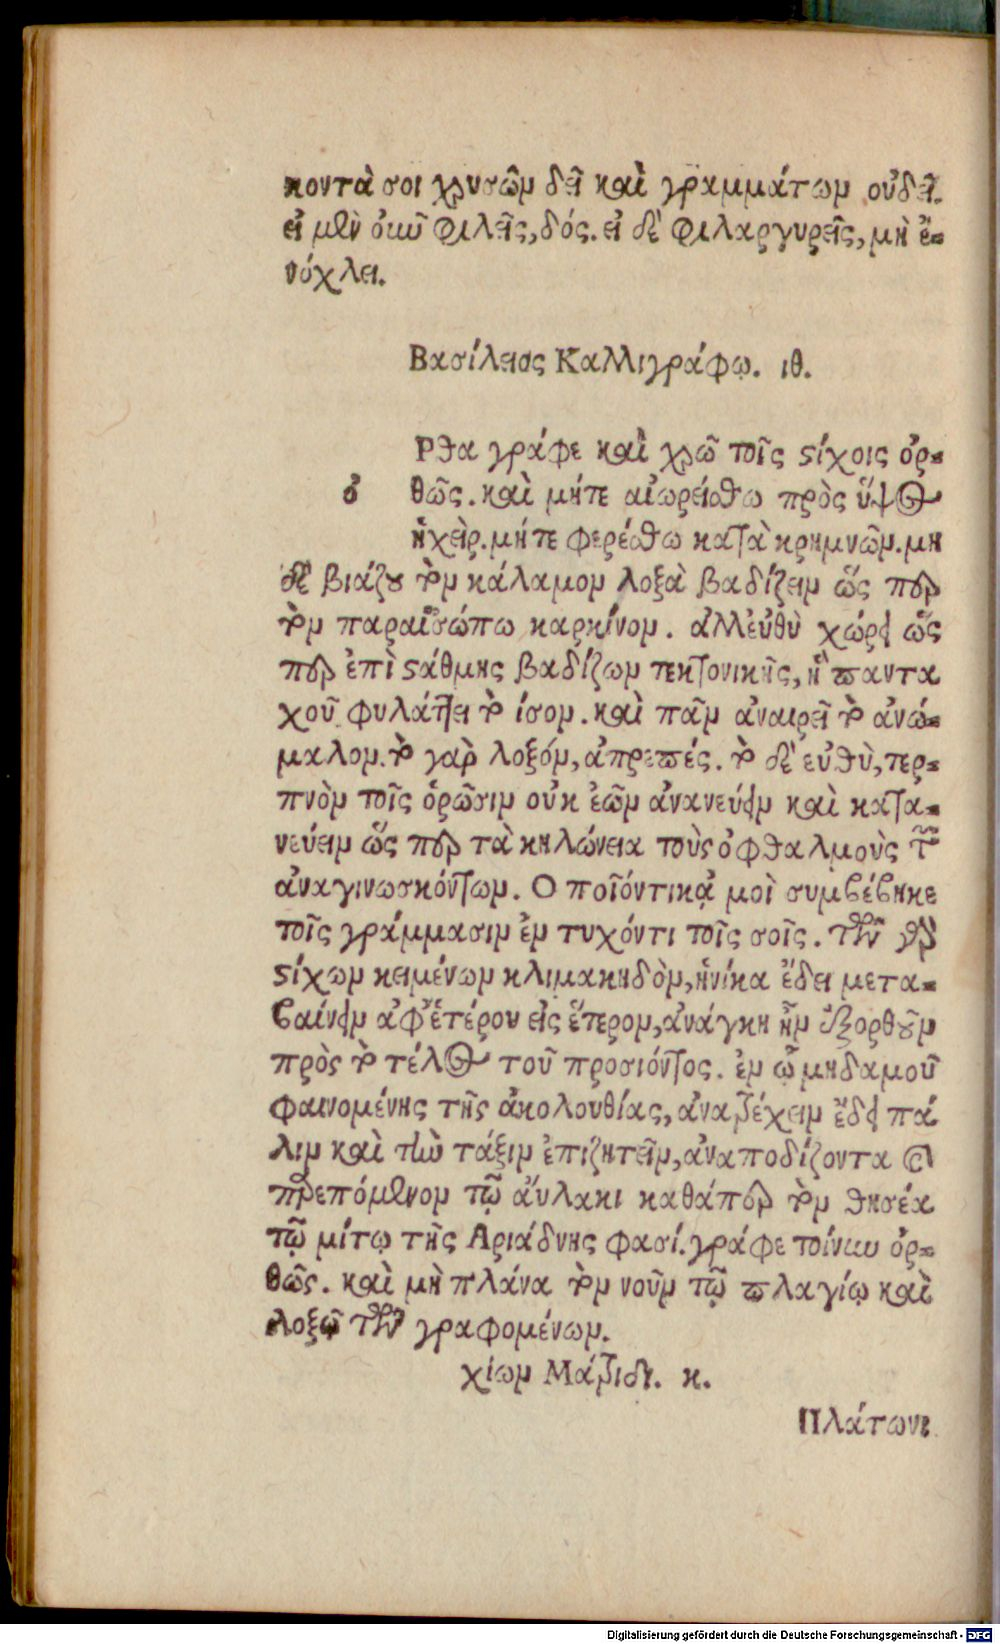 κοντὰ σοι χρυσῶν δεῖ καὶ γραμμάτων οὐδεῖ.
εἰ μὲν ὀκοῦ φιλεῖς, δός. εἰ δὲ φιλαργυρεῖς, μὴ ἔ-
νόχλει.
Βασίλειος Καλλιγράφῳ. ιθ.
Ρθα γράφε καὶ χρῶ τοῖς ϛίχοις ὀρ-
ὀ θῶς. καὶ μήτε αἰωρείσθω πρὸς ὕψος
ἡχεὶρ. μήτε φερέσθω κατὰ κρημνῶν. μη
δὲ βιάζου τὸν κάλαμον λοξὰ βαδίζειν ὥς περ
τὸν παραἰσώπω καρκίνον. ἀλλ' εὐθὺ χώρει ὥς
περ ἐπὶ ϛάθμης βαδίζων τεκτονικῆς, ἣ παντα
χοῦ φυλάττει τὸ ἴσον. καὶ πᾶν ἀναιρεῖ τὸ ἀνώ-
μαλον. τὸ γὰρ λοξόν, ἀπρεπές. τὸ δὲ εὐθὺ, τερ-
πνὸν τοῖς ὁρῶσιν οὐκ ἐῶν ἀνανεύειν καὶ κατα-
νεύειν ὥς περ τὰ κηλώνεια τοὺς ὀφθαλμοὺς τῶν
ἀναγινωσκόντων. Ο ποῖόντικᾀ μοὶ συμβέβηκε
τοῖς γράμμασιν ἐν τυχόντι τοῖς σοῖς. τῶν γὰρ
ϛίχων κειμένων κλιμακηδὸν, ἡνίκα ἔδει μετα-
βαίνειν ἀφ' ἑτέρου εἰς ἕτερον, ἀνάγκη ἦν ἐξορθοῦν
πρὸς τὸ τέλος τοῦ προσιόντος. ἐν ᾧ μηδαμοῦ
φαινομένης τῆς ἀκολουθίας, ἀνατρέχειν ἔδει πά
λιν καὶ τὴν τάξιν ἐπιζητεῖν, ἀναποδίζοντα καὶ
παρεπόμενον τῷ ἄυλακι καθάπερ τὸν θησέα
τῷ μίτῳ τῆς Αριάδνης φασί. γράφε τοίνυν ὀρ-
θῶς. καὶ μὴ πλάνα τὸν νοῦν τῷ πλαγίῳ καὶ
λοξῷ τῶν γραφομένων.
χίων Μάτριδι. κ.
Πλάτωνι
Digitalisierung gefördert durch die Deutsche Forschungsgemeinschaft - DFG